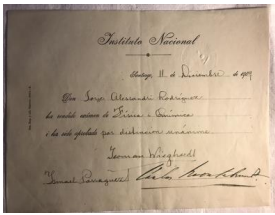 Instituto Nacional
Santiago, 11 de Diciembre de 19
Don Jorge Alessandri Rodríguez
ha rendido exámen de Física i Química
i ha sido aprobado por distincion unánime
Ismael Parraguez
Carlos